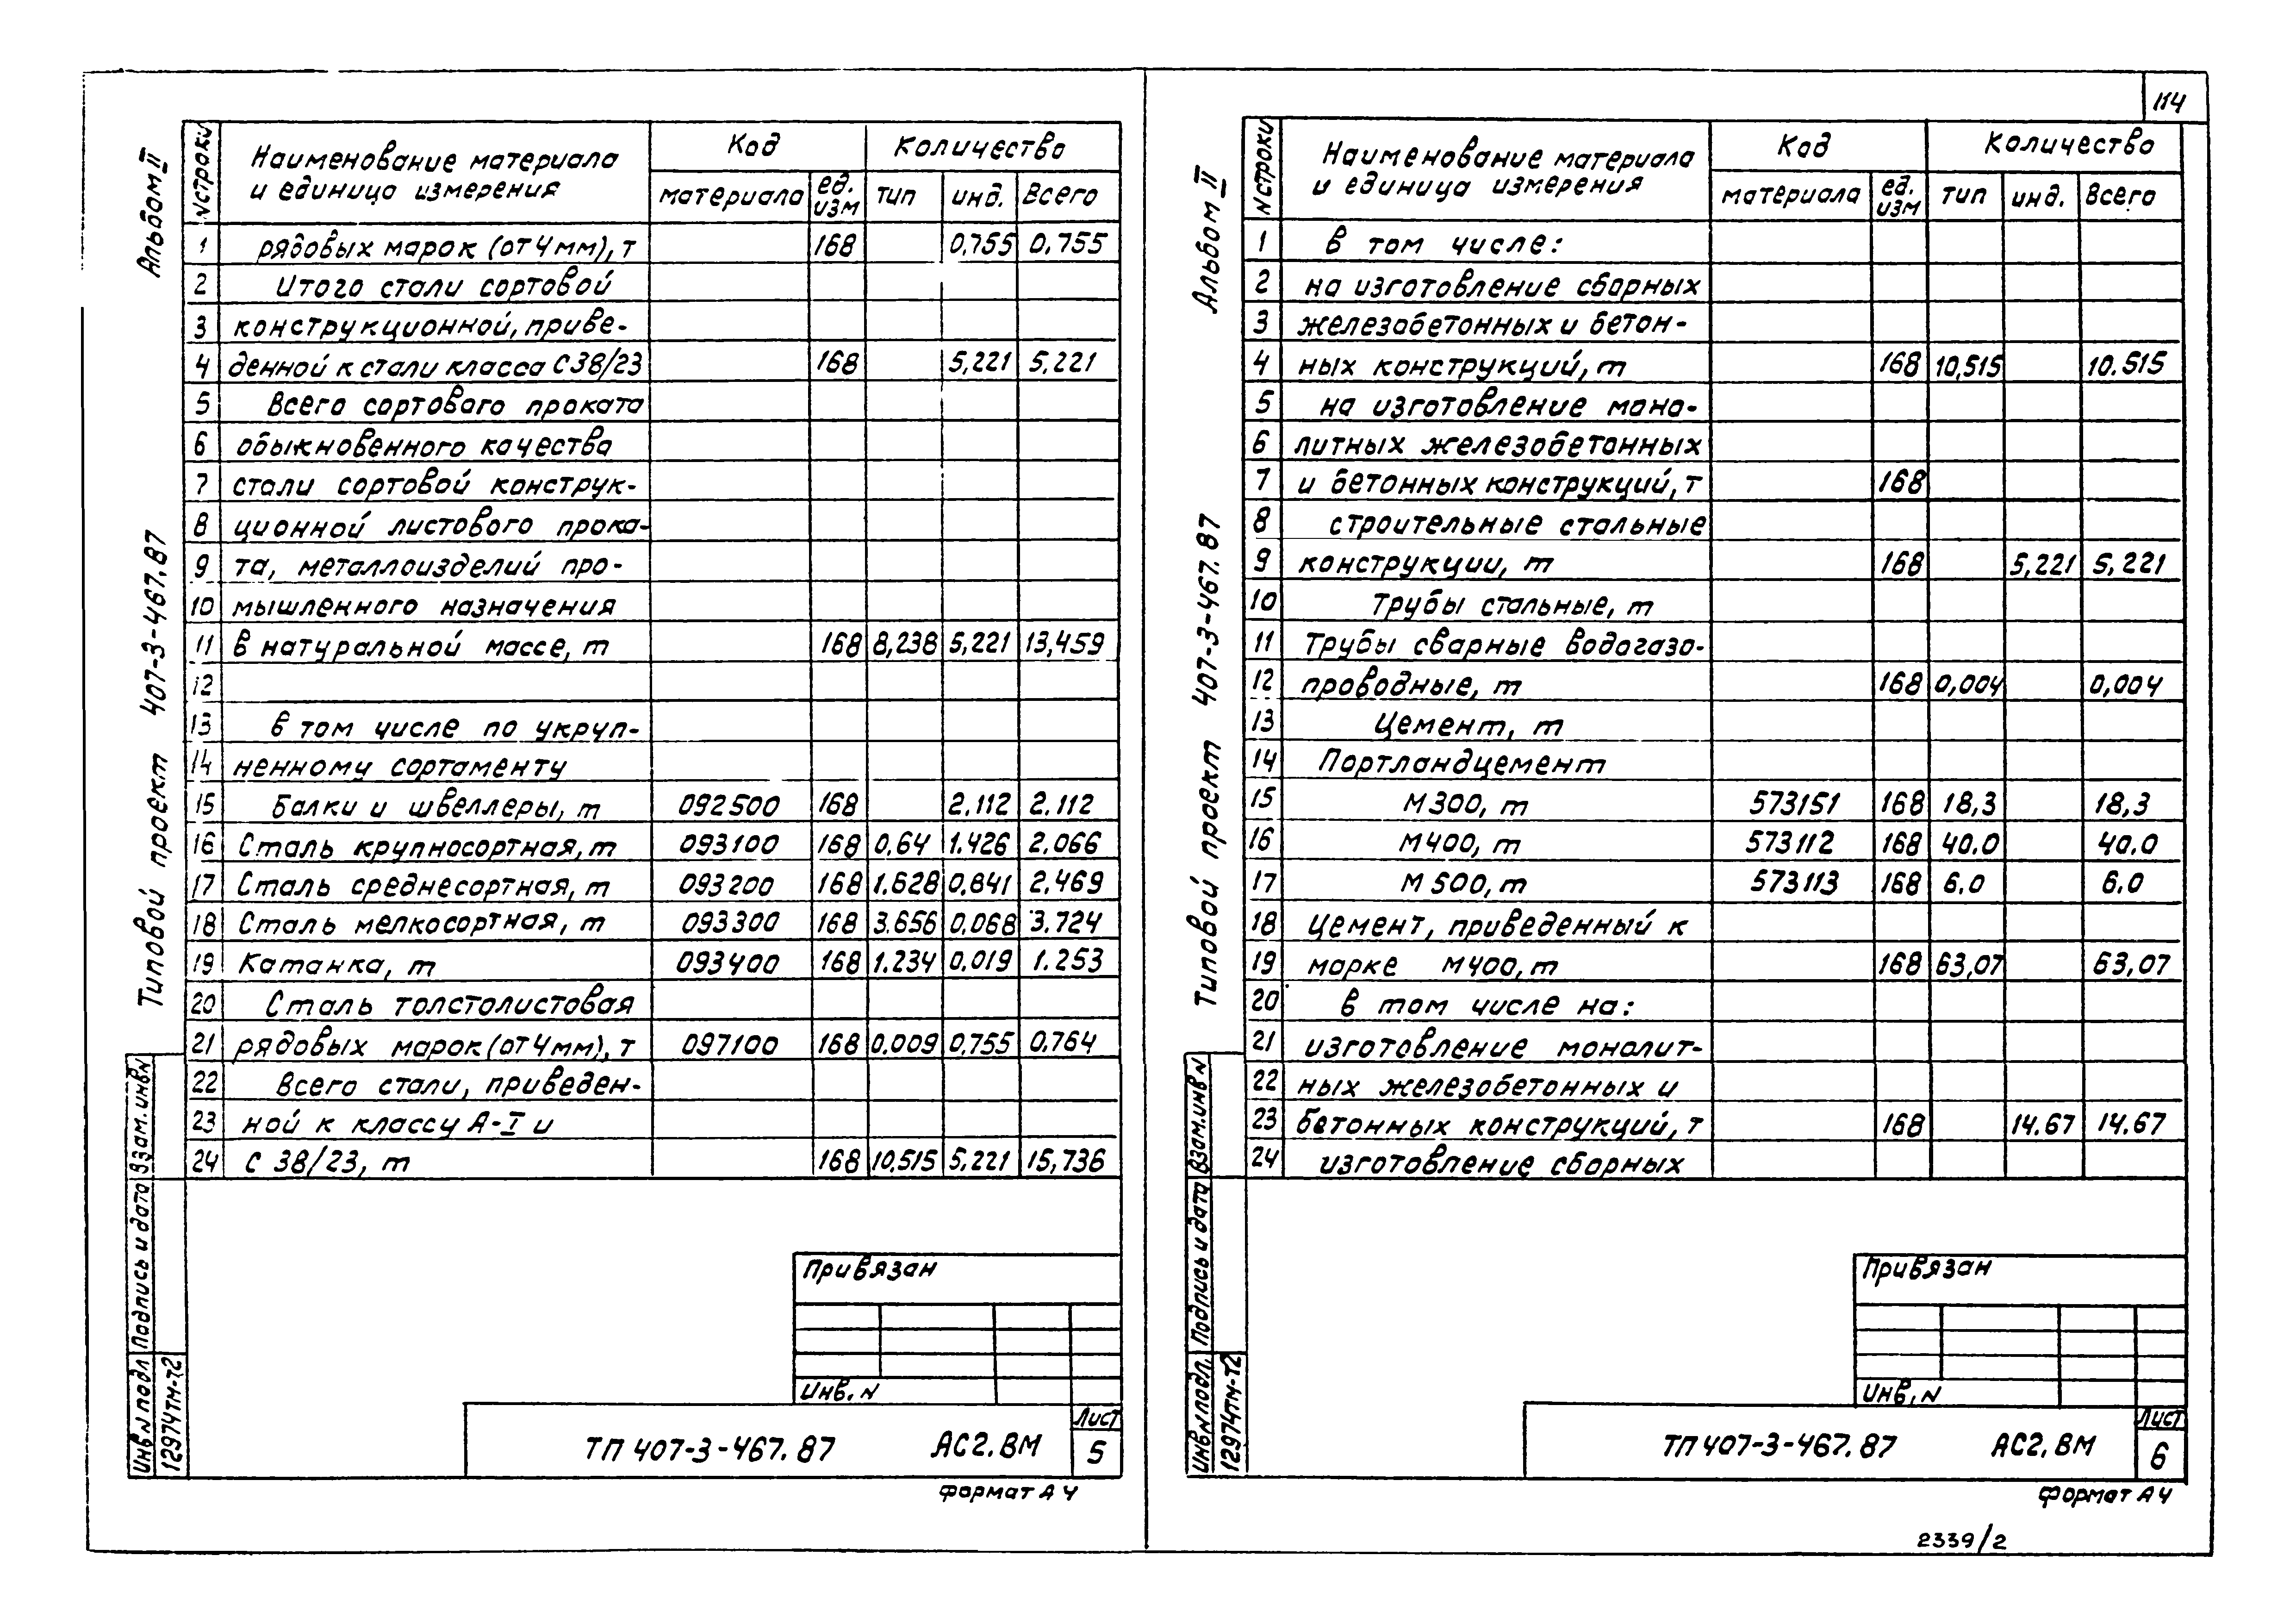 114
Альбом II
Типовой проект 407-3-467.87
N строки Наименование материала и единица измерения Код Количество
материала ед. изм тип инд. Всего
1 рядовых марок (от 4 мм), т 168 0,755 0,755
2 Итого стали сортовой
3 конструкционной, приве-
4 денной к стали класса С38/23 168 5,221 5,221
5 Всего сортового проката
6 обыкновенного качества
7 стали сортовой конструк-
8 ционной листового прока-
9 та, металлоизделий про-
10 мышленного назначения
11 в натуральной массе, т 168 8,238 5,221 13,459
12
13 в том числе по укруп-
14 ненному сортаменту
15 Балки и швеллеры, т 092500 168 2.112 2.112
16 Сталь крупносортная, т 093100 168 0,64 1.426 2,066
17 Сталь среднесортная, т 093200 168 1.628 0,841 2,469
18 Сталь мелкосортная, т 093300 168 3.656 0,068 3.724
19 Катанка, т 093400 168 1.234 0,019 1.253
20 Сталь толстолистовая
21 рядовых марок (от 4 мм), т 097100 168 0,009 0,755 0,764
22 Всего стали, приведен-
23 ной к классу А-I и
24 С 38/23, т 168 10,515 5,221 15,736
Взам. инв N
Подпись и дата
Инв N подл
12974тм-т2
Привязан
Инв. N
ТП 407-3-467. 87 АС2. ВМ Лист 5
формат А4
Альбом II
Типовой проект 407-3-467. 87
N строки Наименование материала и единица измерения Код Количество
материала ед. изм тип инд. Всего
1 в том числе:
2 на изготовление сборных
3 железобетонных и бетон-
4 ных конструкций, т 168 10,515 10.515
5 на изготовление моно-
6 литных железобетонных
7 и бетонных конструкций, т 168
8 строительные стальные
9 конструкции, т 168 5,221 5,221
10 Трубы стальные, т
11 Трубы сварные водогазо-
12 проводные, т 168 0,004 0,004
13 Цемент, т
14 Портландцемент
15 М300, т 573151 168 18,3 18,3
16 М400, т 573112 168 40.0 40.0
17 М 500, т 573113 168 6.0 6.0
18 Цемент, приведенный к
19 марке М400, т 168 63,07 63,07
20 в том числе на:
21 изготовление монолит-
22 ных железобетонных и
23 бетонных конструкций, т 168 14.67 14.67
24 изготовление сборных
Взам. инв N
Подпись и дата
Инв N подл.
12974тм-т2
Привязан
Инв. N
ТП 407-3-467. 87 АС2. ВМ Лист 6
формат А4
2339/2